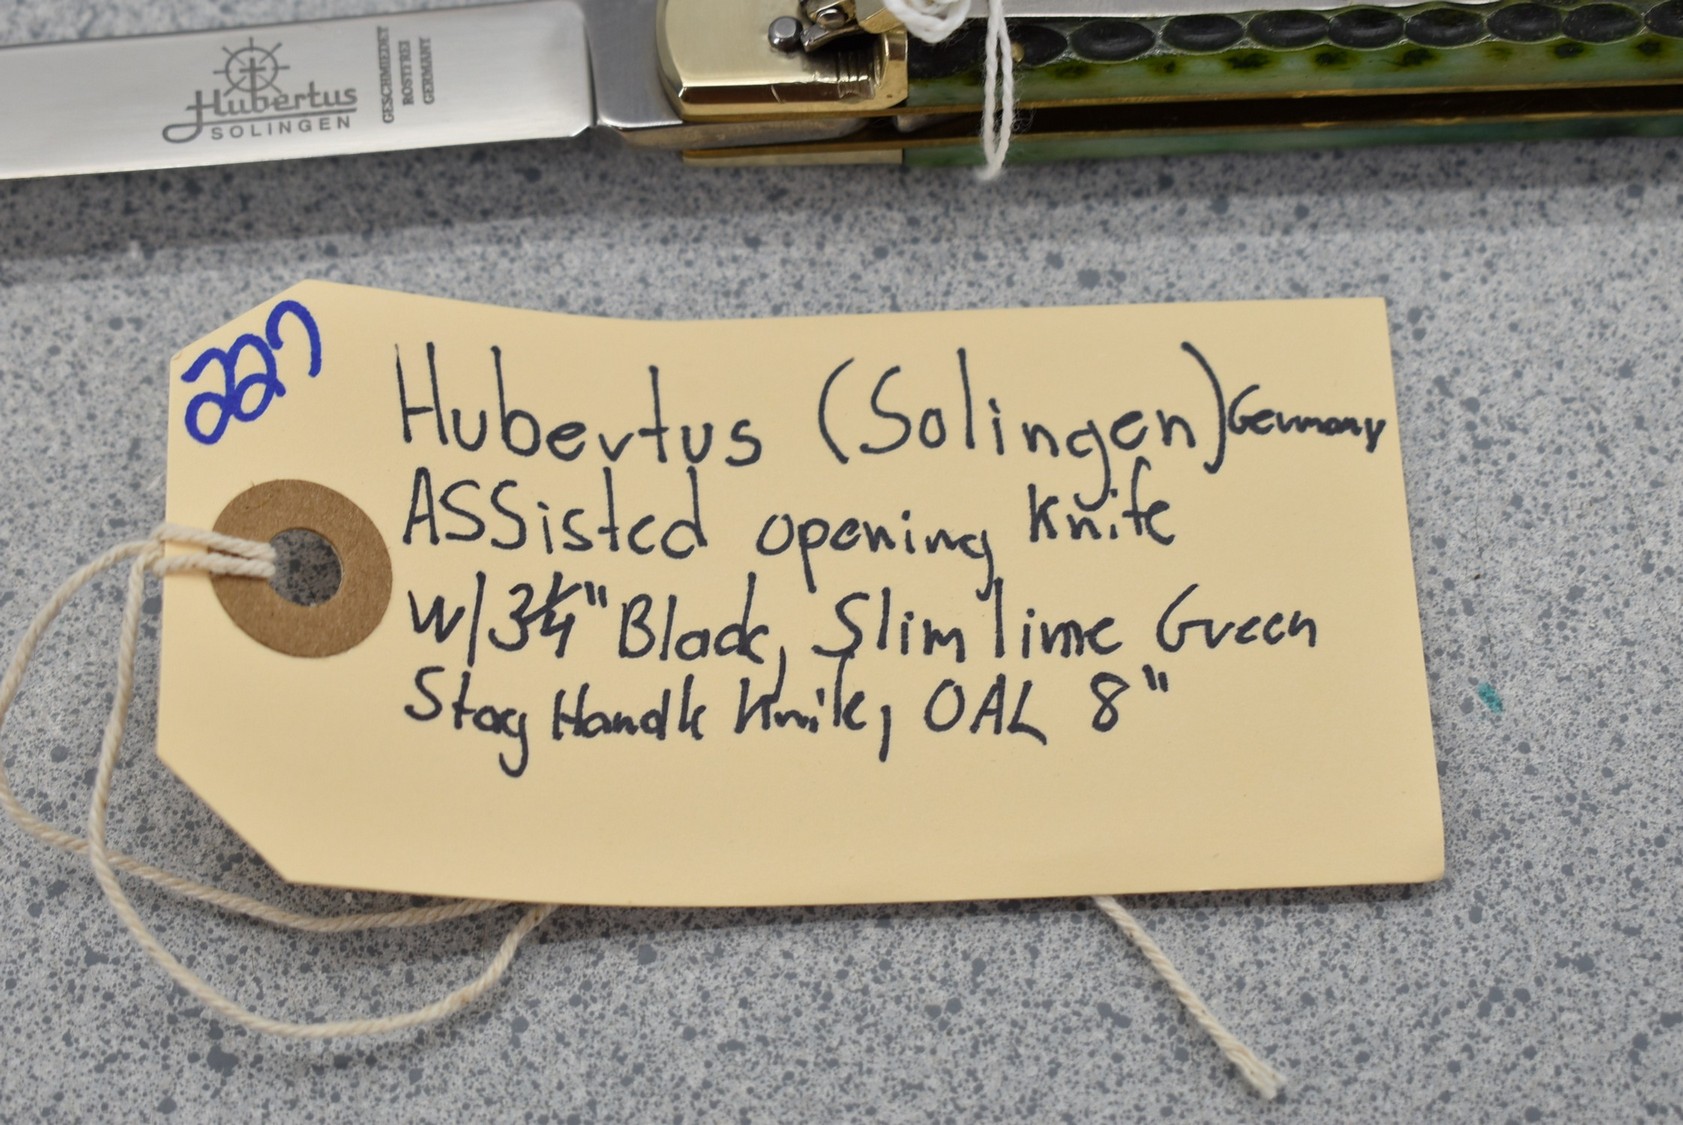 Hubertus
SOLINGEN
GESCHMIEDET
ROSTFREI
GERMANY
227
Hubertus (Solingen) Germany
ASSisted opening Knife
W/ 3¼" Blade, Slim lime Green
Stag Handle Knife, OAL 8"